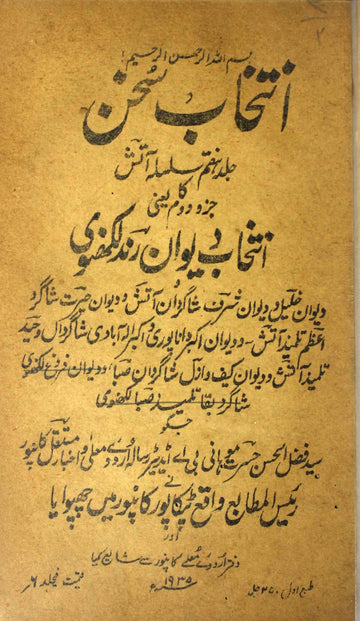 بسم اللہ الرحمن الرحیم
انتخاب سخن
جلد ہفتم سلسلہ آتش
کا
جزو دوم یعنی
انتخاب دیوان رند لکھنوی
دیوان خلیل و دیوان شرف شاگردان آتش و دیوان حیرت شاگرد
اعظم تلمیذ آتش۔ و دیوان اکبر دانا پوری و اکبر الہ آبادی شاگردان وحید
تلمیذ آتش و دیوان کیف و شاگردان صبا و دیوان فروغ لکھنوی
شاگرد بقا تلمیذ صبا لکھنوی
جسکو
سید فضل الحسن حسرت موہانی بی اے ایڈیٹر رسالہ اردوے معلی و اخبار مستقل کانپور
نے
رئیس المطابع واقع ٹپکاپور کانپور میں چھپوایا
اور
دفتر اردوے معلے کانپور سے شایع کیا
۱۹۳۵ء
طبع اول ۲۵۰ جلد
قیمت فیجلد ۶